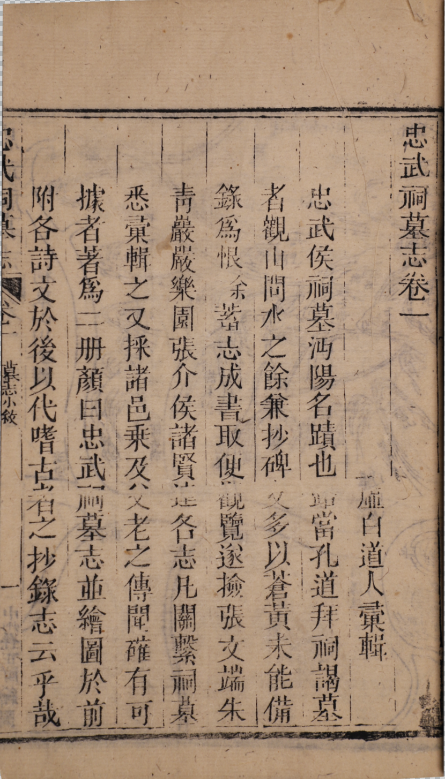 忠武祠墓志卷一
虛白道人彙輯
忠武侯祠墓沔陽名蹟也 當孔道拜祠謁墓
者觀山問水之餘兼抄碑文多以蒼黃未能備
錄爲恨余蓄志成書取便觀覽遂撿張文端朱
靑巖嚴樂園張介侯諸賢 各志凡關繫祠墓
悉彙輯之又採諸邑乘及父老之傳聞確有可
據者著爲二册顏曰忠武祠墓志並繪圖於前
附各詩文於後以代嗜古者之抄錄志云乎哉
忠武祠墓志 卷一 墓志小敘 一